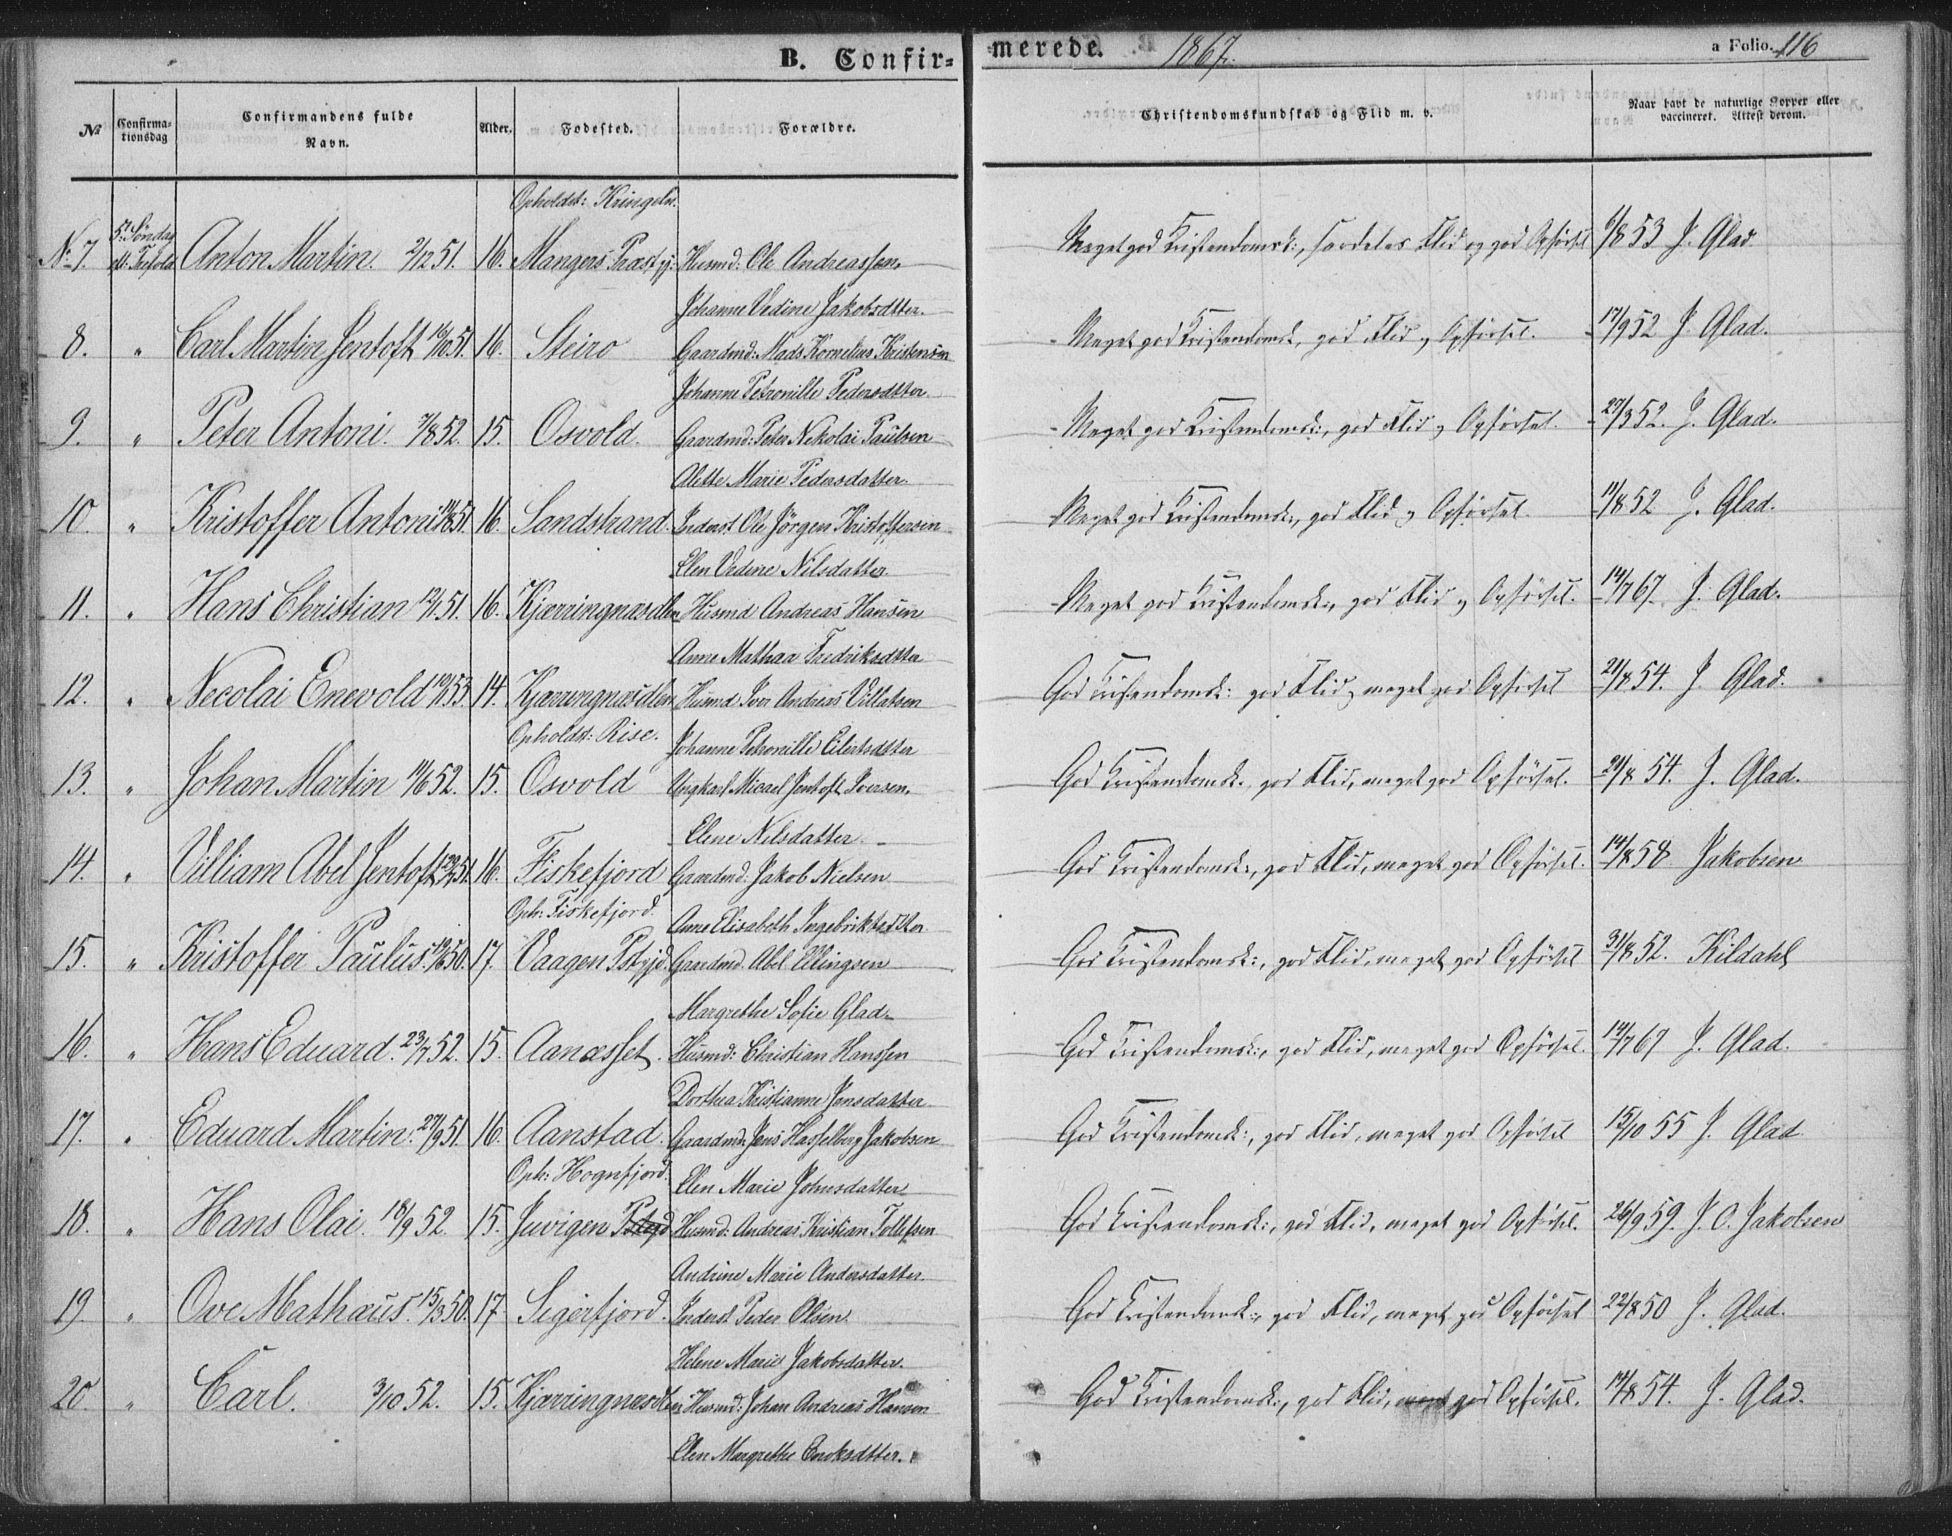 B. Confirmerede. 1867. a Folio. 116
№ Confirmationsdag Confirmandens fulde Navn. Alder. Fødested. Forældre. Christendomskundskab og Flid m. v. Naar havt de naturlige Kopper eller vaccineret. Attest derom.
Opholdst: Kringeln.
No 7. 5te Søndag eft. Trefold. Anton Martin. 2/12 51. 16. Mangers Præstgj: Husmd: Ole Andreassen, Meget god Kristendomsk:, særdeles Flid og god Opførsel 9/8 53 J. Glad.
Johanne Vedine Jakobsdtter.
8. " Carl Martin Jentoft 16/10 51. 16. Steiro Gaardmd: Mads Kornelius Kristensen Meget god Kristendomsk, god Flid og Opførsel. 17/9 52 J Glad.
Johanne Petronille Pedersdtter
9. " Peter Antoni. 7/8 52. 15. Osvold. Gaardmd: Peter Nekolai Paulsen Meget god Kristendomsk:, god Flid og Opførsel. 27/3 52. J. Glad.
Alette Marie Pedersdatter.
10. " Kristoffer Antoni 51 16. Sandstrand. Inderst Ole Jörgen Kristoffersen Meget god Kristendomsk:, god Flid og Opførsel. 14/8 52 J. Glad.
Elen Vedine Nilsdatter.
11. " Hans Christian 12/1 51. 16. Kjærringnæsdlen Husmd Andreas Hansen Meget god Kristendomsk:, god Flid og Opførsel. 14/7 67. J. Glad.
Anne Mathaa Fredriksdtter
12. " Necolai Enevold 19/1 53. 14. Kjærringnæsdlen Husmd Iver Andreas Villatsen God Kristendomsk: god Flid, meget god Opførsel 21/8 54. J. Glad.
Opholdst: Rise. Johanne Petronille Eilertsdtter
13. " Johan Martin 11/6 52. 15. Osvold Ungkarl Micael Jentoft Iversen. God Kristendomsk. god Flid, meget god Opførsel. 21/8 54. J. Glad.
Elene Nilsdatter.
14. " Villiam Abel Jentoft 51. 16. Fiskefjord Gaardmd: Jakob Nielsen God Kristendomsk:, god Flid, meget god Opførsel. 14/8 58 Jakobsen
Oph: Fiskefjord. Anne Elisabeth Ingebriktsdtter
15. " Kristoffer Paulus. 50. 17. Vaagen Pstgjd. Gaardmd. Abel Ellingsen God Kristendomsk:, god Flid, meget god Opførsel 31/8 52. Kildahl
Margrethe Sofie Glad.
16. " Hans Eduard. 23/7 52. 15. Aanæsset. Husmd: Christian Hanssen God Kristendomsk:, god Flid, meget god Opførsel. 14/7 67 J. Glad.
Dorthea Kristianne Jonsdatter
17. " Eduard Martin. 27/9 51. 16. Aanstad. Gaardmd: Jens Hasselberg Jakobsen God Kristendomsk:, god Flid, meget god Opførsel 15/10 55 J. Glad
Oph: Hognfjord. Elen Marie Johnsdatter
18. " Hans Olai. 18/9 52. 15. Juvigen Pstgjd Husmd: Andreas Kristian Tollefsen God Kristendomsk:, god Flid, meget god Opførsel. 26/9 59. J. O. Jakobsen
Andrine Marie Andersdatter.
19. " Ove Mathæus. 15/3 50. 17. Sigerfjord. Inderst Peder Olsen. God Kristendomsk:, god Flid, meget god Opførsel 22/8 50 J. Glad.
Helene Marie Jakobsdatter.
20. " Carl. 3/10 52. 15. Kjærringnæsdlen Husmd: Johan Andreas Hansen God Kristendomsk:, god Flid, meget god Opførsel. 14/8 54. J. Glad.
Elen Margrethe Enoksdtter.